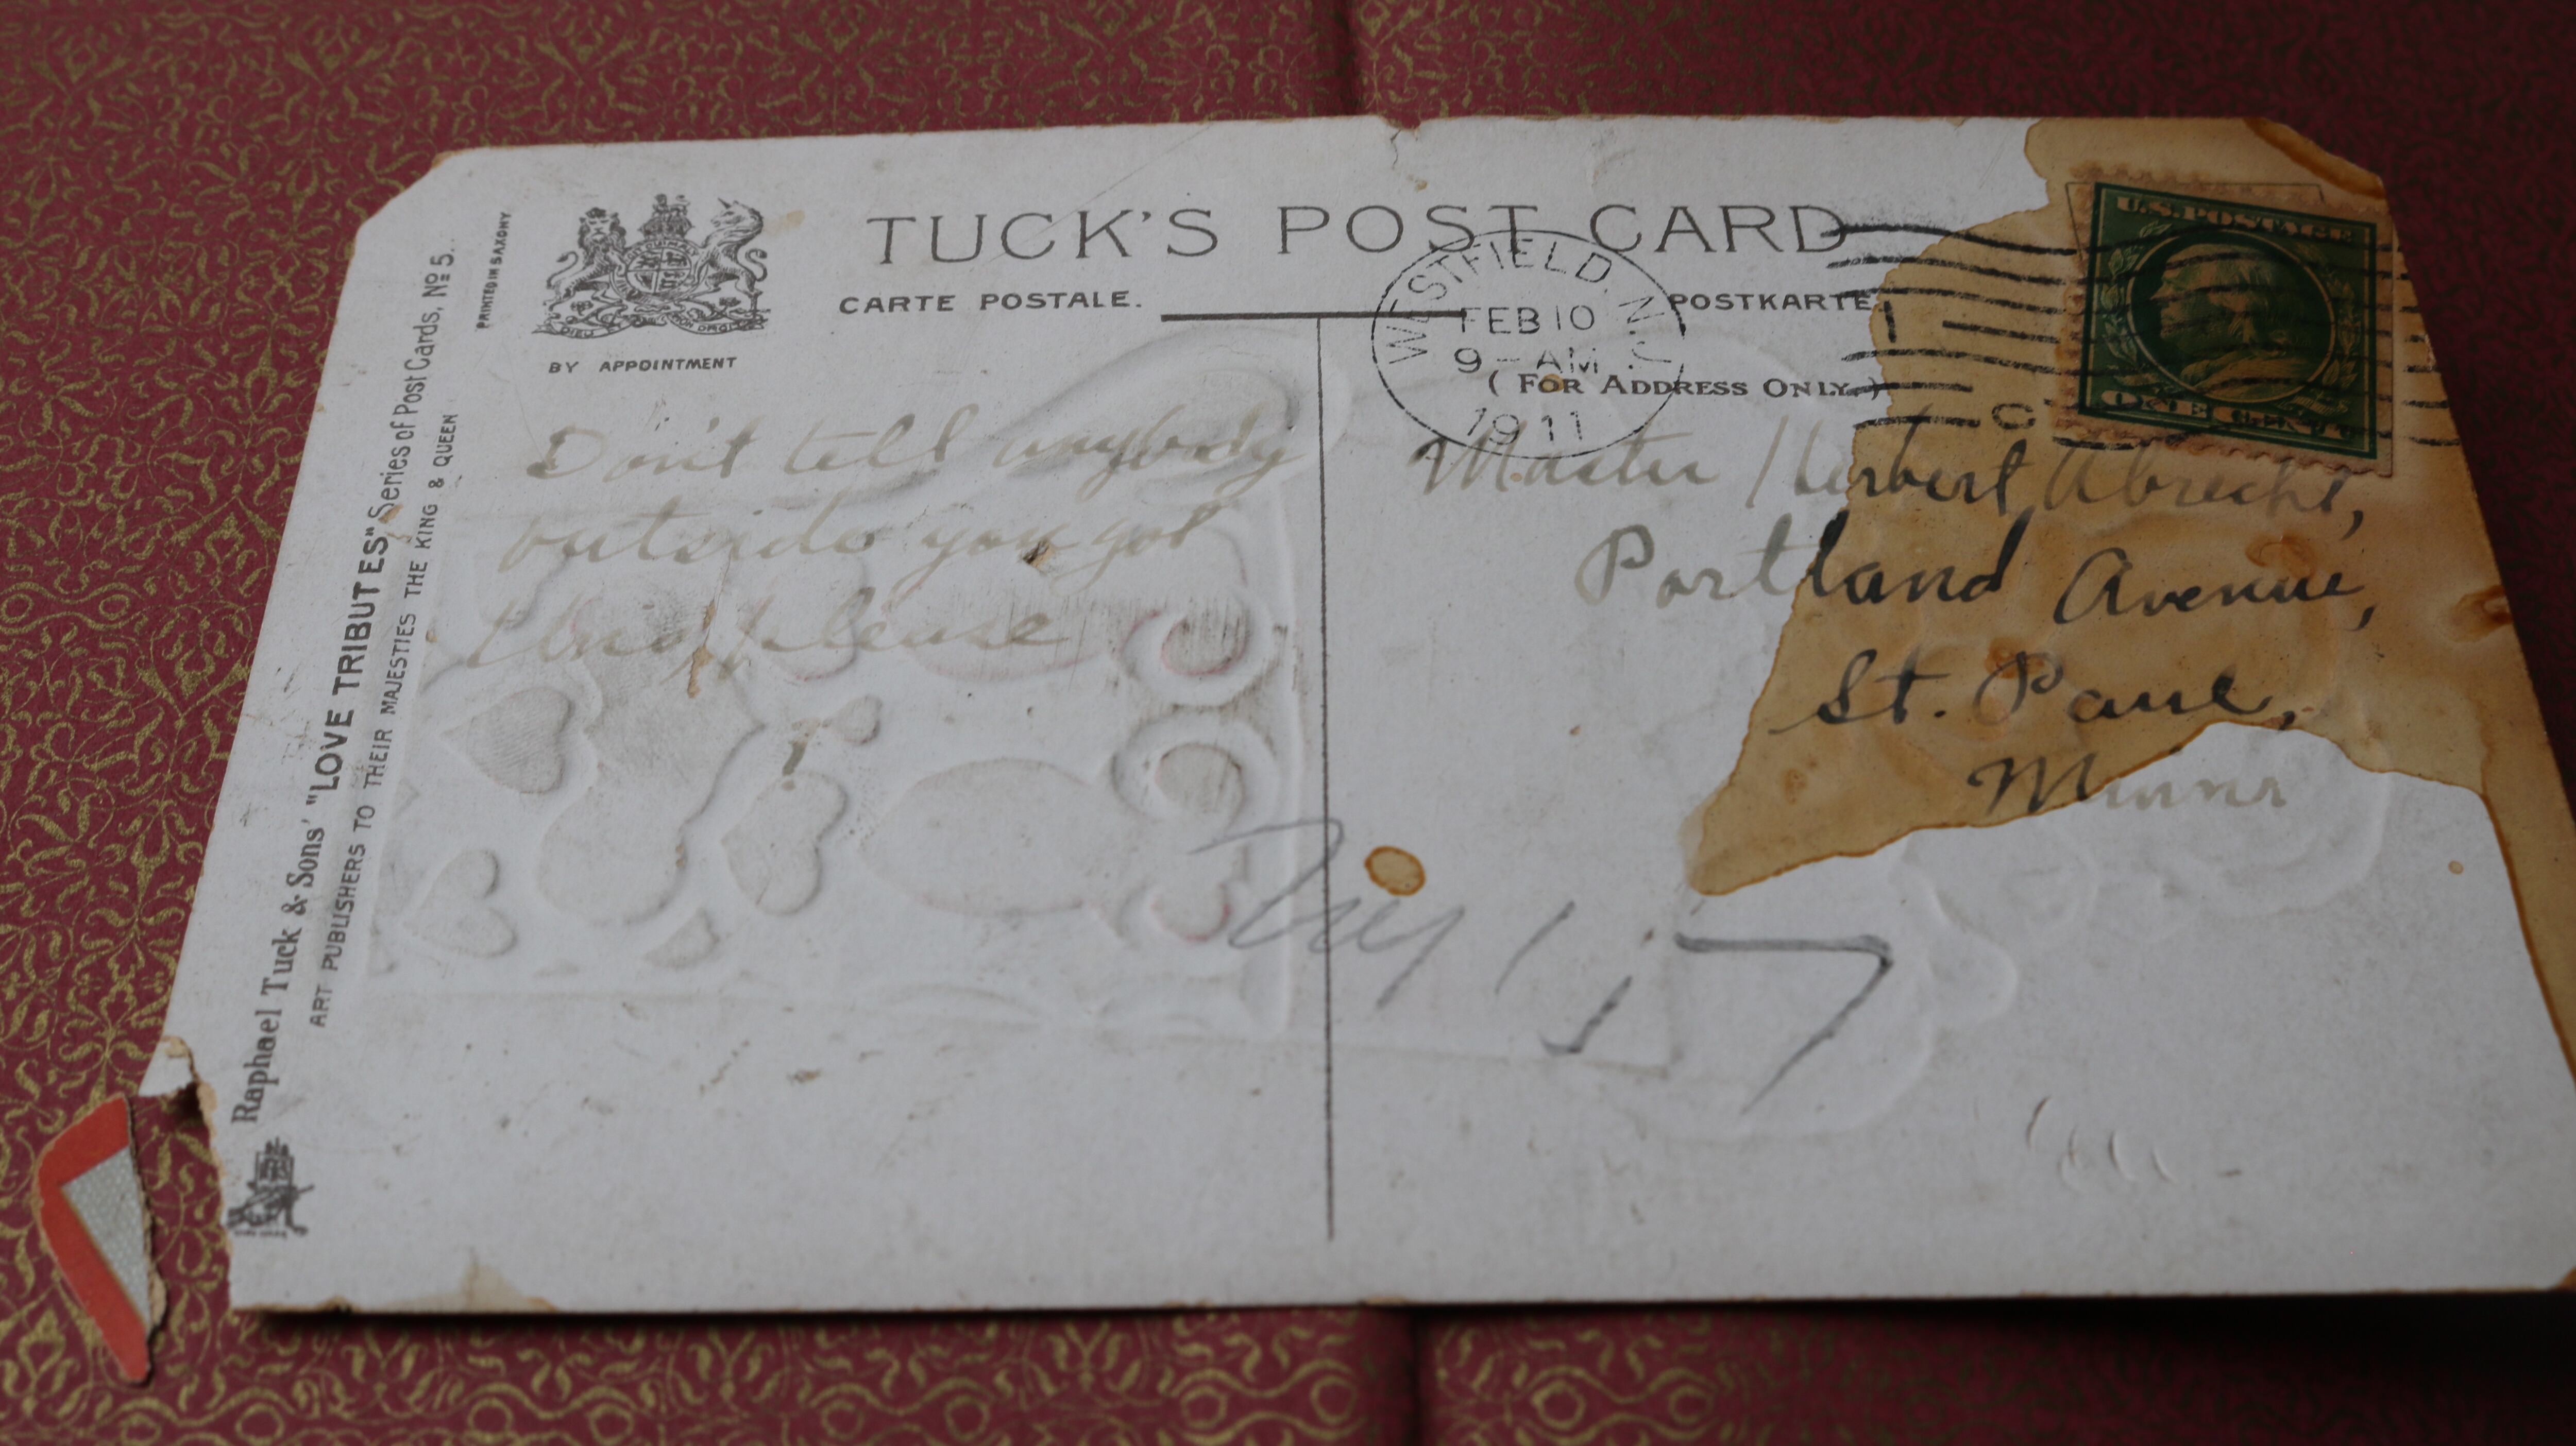 TUCK'S POST CARD
CARTE POSTALE.
POSTKARTE
(FOR ADDRESS ONLY.)
BY APPOINTMENT
PRINTED IN SAXONY
Raphael Tuck & Sons' "LOVE TRIBUTES" Series of Post Cards, No 5.
ART PUBLISHERS TO THEIR MAJESTIES THE KING & QUEEN
DIEU
WESTFIELD, N.
FEB 10
9-AM
1911
U.S. POSTAGE
ONE CENT
Don't tell anybody
outside you got
this, please
Master Herbert Abrecht,
Portland Avenue,
St. Paul,
Minn
17